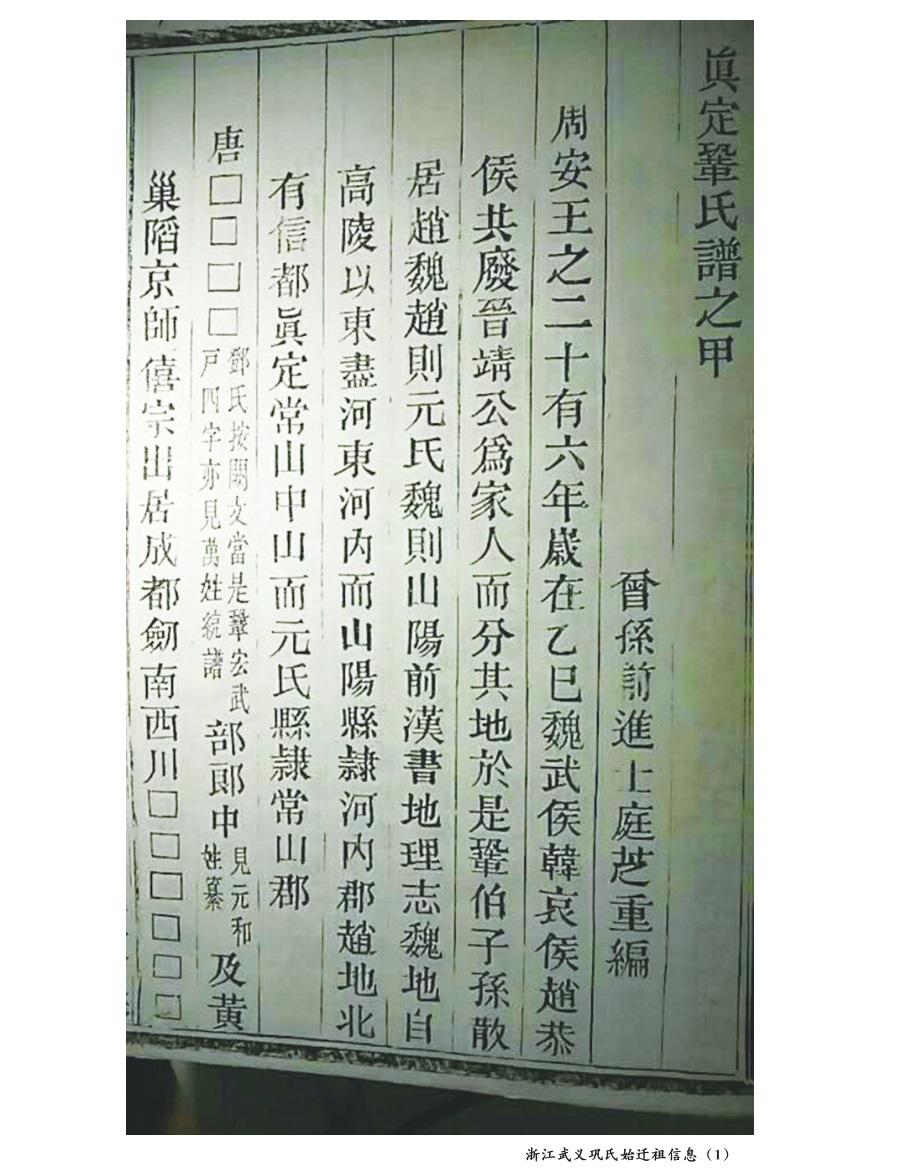 眞定鞏氏譜之甲
曾孫前進士庭芝重編
周安王之二十有六年歲在乙巳魏武侯韓哀侯趙恭
侯共廢晉靖公爲家人而分其地於是鞏伯子孫散
居趙魏趙則元氏魏則山陽前漢書地理志魏地自
高陵以東盡河東河內而山陽縣隸河內郡趙地北
有信都眞定常山中山而元氏縣隸常山郡
唐□□□□鄧氏按闕文當是鞏宏武戸四字亦見萬姓統譜部郎中見元和姓纂及黃
巢陷京師僖宗出居成都劒南西川□□□□□□
浙江武义巩氏始迁祖信息（1）